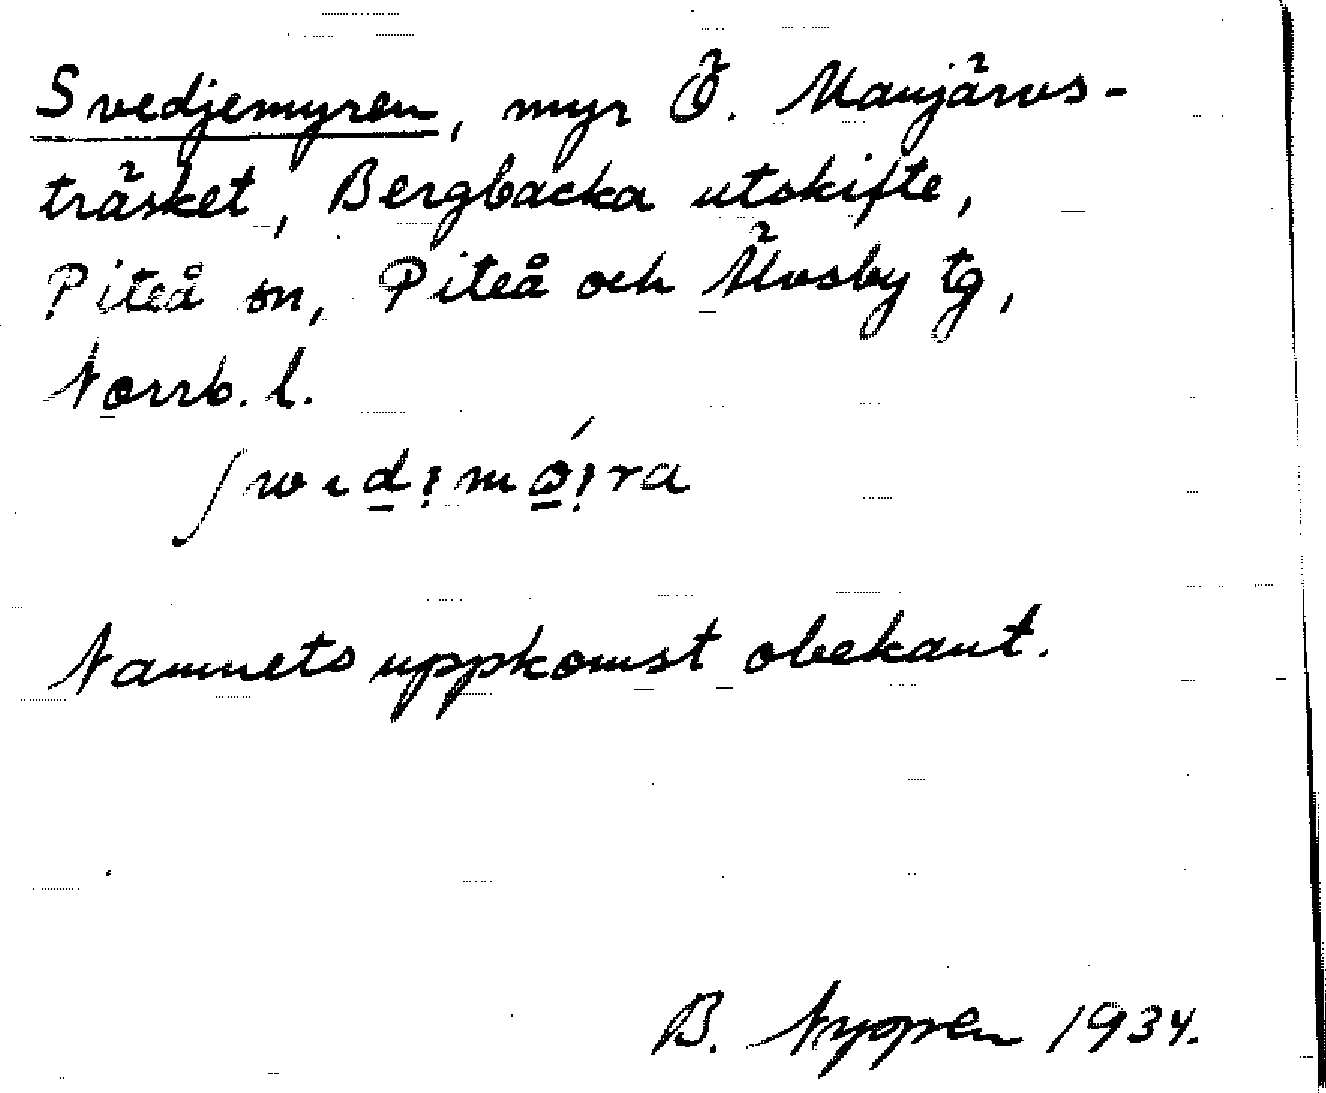 Svedjemyren, myr Ö. Manjärvs-
träsket, Bergbacka utskifte,
Piteå sn, Piteå och Älvsby tg,
Norrb. l.
Namnets uppkomst obekant.
B. Nygren 1934.